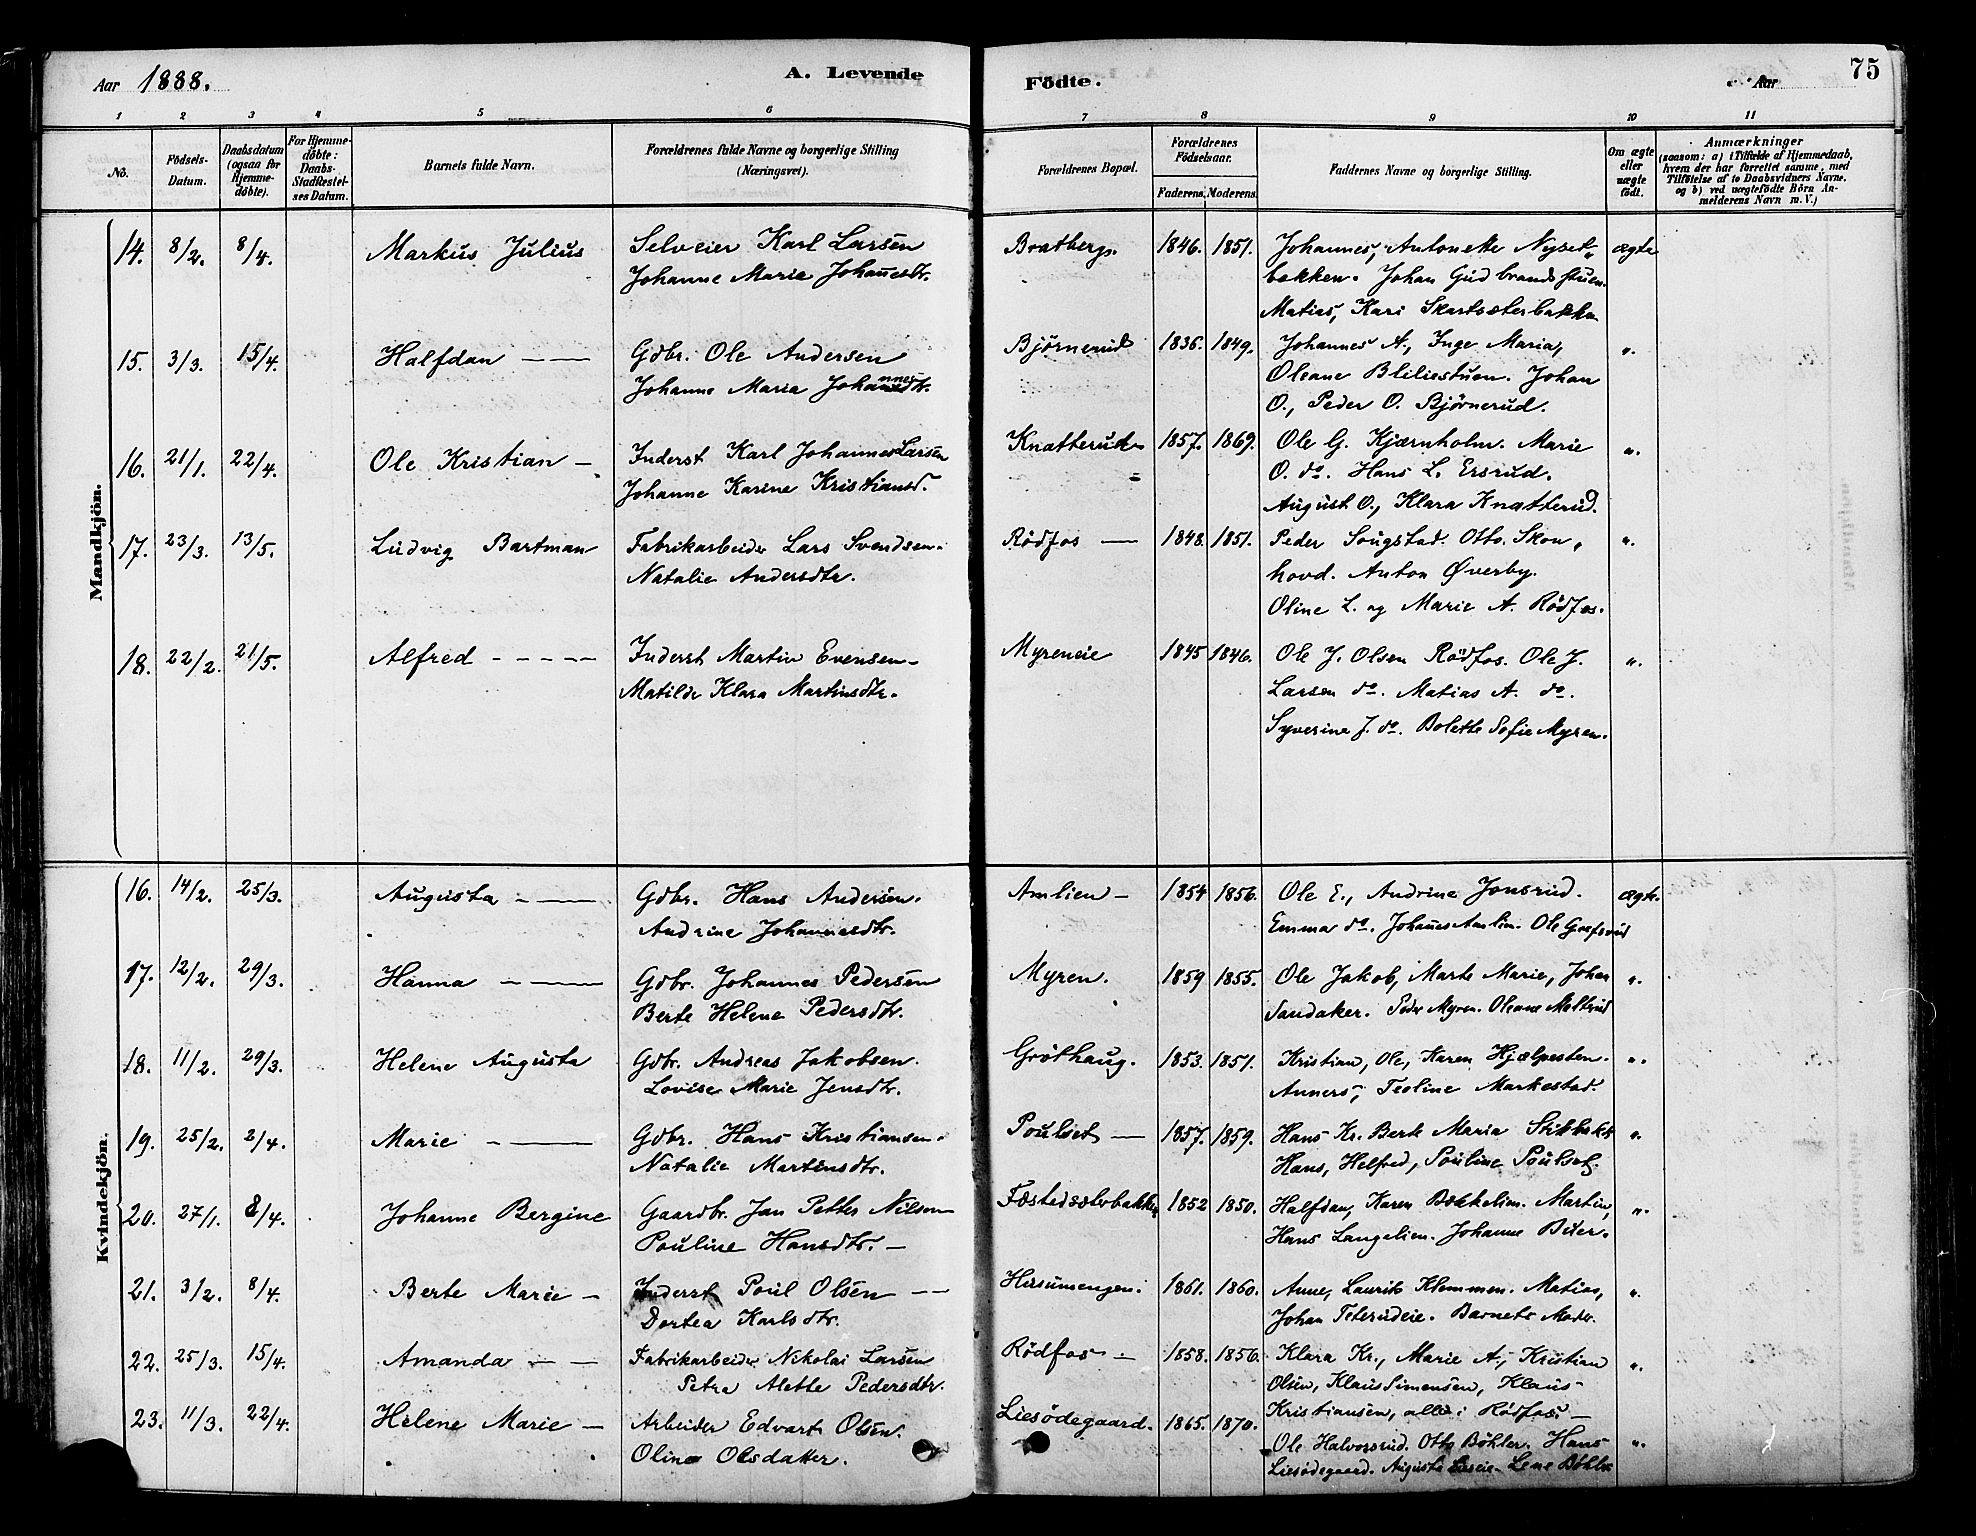 Aar 1888.
A. Levende
Födte.
Aar
75
1 2 3 4 5 6 7 8 9 10 11
No.
Födsels-Datum.
Daabsdatum (ogsaa for Hjemmedöbte).
For Hjemmedöbte: Daabs-Stadfæstelses Datum.
Barnets fulde Navn.
Forældrenes fulde Navne og borgerlige Stilling (Næringsvei).
Forældrenes Bopæl.
Forældrenes Födselsaar.
Faderens. Moderens.
Faddernes Navne og borgerlige Stilling.
Om ægte eller uægte födt.
Anmærkninger
(saasom: a) i Tilfælde af Hjemmedaab, hvem der har forrettet samme, med Tilföielse af to Daabsvidners Navne, og b) ved uægtefödte Börn Anmelderens Navn m. V.)
Mandkjön.
14. 8/2. 8/4. Markus Julius Selveier Karl Larsen Bratberg. 1846. 1851. Johannes, Antonette Nyset„ ægte
Johanne Marie Johannesdtr. bakken. Johan Gudbrandstuen.
Matias, Kari Skartsæterbakken
15. 3/3. 15/4. Halfdan — — Gdbr. Ole Andersen Bjørnerud 1836. 1849. Johannes A., Inge Maria, „
Johanne Maria Johannesdtr. Oleane Bliliestuen. Johan
O., Peder O. Bjørnerud.
16. 21/1. 22/4. Ole Kristian — Inderst Karl Johannes Larsen Knatterud 1857. 1869. Ole G. Kjærnholm. Marie „
Johanne Karine Kristiansd. O. do. Hans L. Ersrud.
August O., Klara Knatterud.
17. 23/3. 13/5. Ludvig Bartman Fabrikarbeider Lars Svendsen. Rödfos — 1848. 1851. Peder Sougstad. Otto Skon„ „
Natalie Andersdtr. hovd. Anton Øverby.
Oline L. og Marie A. Rödfos.
18. 22/2. 21/5. Alfred - - - - - Inderst Martin Evensen Myreneie 1845 1846. Ole J. Olsen Rödfos. Ole J. „
Matilde Klara Martinsdtr. Larsen do. Matias A. do.
Syverine J. do. Bolette Sofie Myren.
Kvindekjön.
16. 14/2. 25/3. Augusta - — Gdbr. Hans Andersen. Amlien - 1854 1856. Ole E., Andrine Jonsrud. ægte.
Andrine Johannesdtr. Emma do. Johanes Amlin. Ole
17. 12/2. 29/3. Hanna - — Gdbr. Johannes Pedersen Myren. 1859 1855. Ole Jakob, Marte Marie, Johan „
Berte Helene Pedersdtr. Sandaker. Peder Myren. Oleane
18. 11/2. 29/3. Helene Augusta Gdbr. Andreas Jakobsen. Gröthaug. 1853. 1851. Kristian, Ole, Karen Hjælpesten. „
Lovise Marie Jensdtr. Anners, Teoline Markestad.
19. 25/2. 2/4. Marie - — Gdbr. Hans Kristiansen. Poulset — 1857. 1859. Hans Kr. Berte Maria „
Natalie Martinsdtr. Hans, Helfred, Pouline Poulset.
20. 27/1. 8/4. Johanne Bergine Gaardbr. Jan Petter Nilsen Fæstedsæterbakken 1852 1850. Halfdan, Karen Bækkelien. Martin, „
Pouline Hansdtr. — Hans Langelien. Johanne
21. 3/2. 8/4. Berte Marie - Inderst Poul Olsen — 1861. 1860. Anne, Laurits Klemmen. Matias, „
Dortea Karlsdtr. Johan Teterudeie. Barnets Moder.
22. 25/3. 15/4. Amanda - - Fabrikarbeider Nikolai Larsen Rödfos - 1858. 1856. Klara Kr., Marie A., Kristian „
Petra Alette Pedersdtr. Olsen, Klaus Simensen, Klaus
Kristiansen, alle i Rödfos. —
23. 11/3. 22/4. Helene Marie - Arbeider Edvart Olsen. Liesödegaard. 1865. 1870. Ole Halvorsrud. Otto Böhler. Hans „
Oline Olsdatter. Liesödegaard. Augusta Lene Böhler